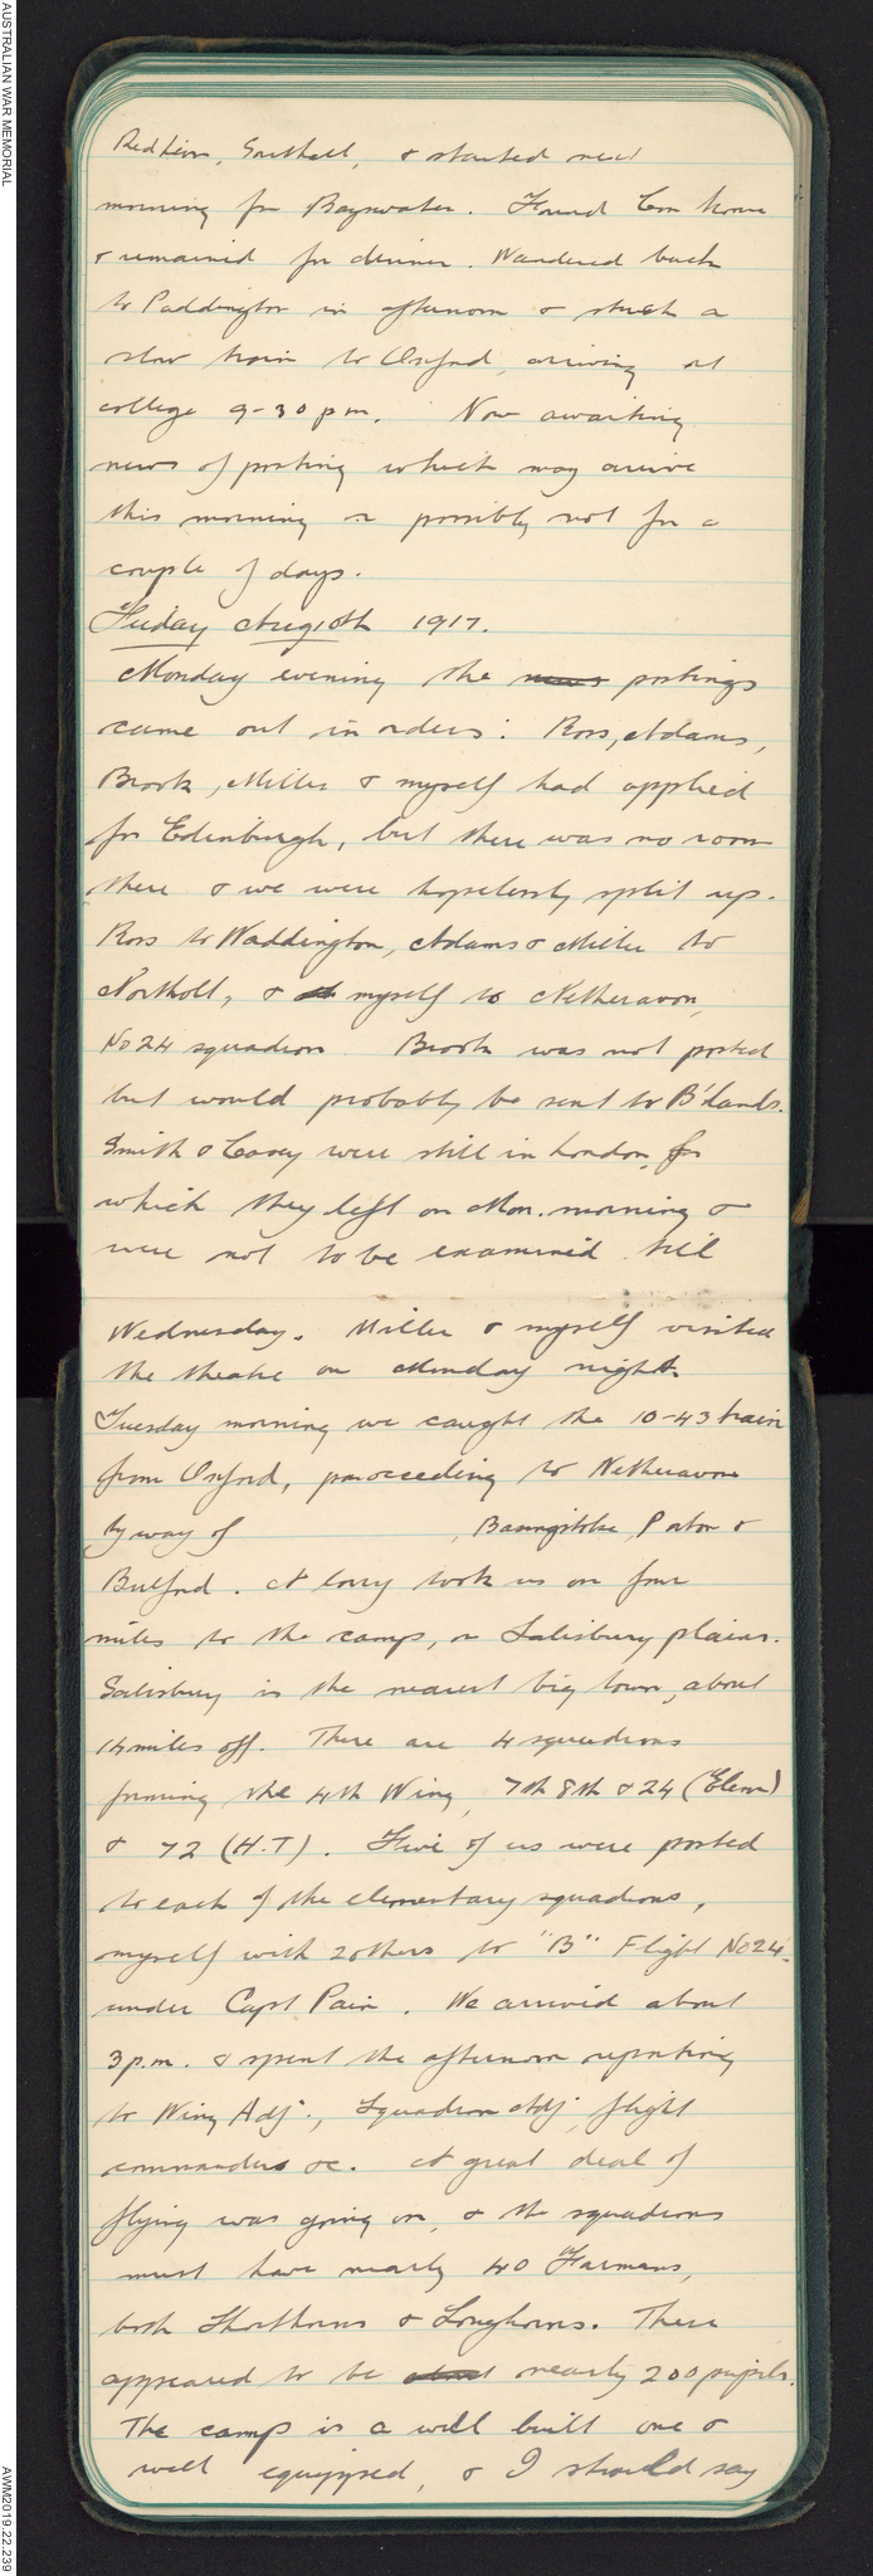 AUSTRALIAN WAR MEMORIAL
Red Lion, Southall, & started next
morning for Bayswater. Found home
& remained for dinner. Wandered back
to Paddington in afternoon & struck a
slow train to Oxford, arriving at
college 9-30 pm. Now awaiting
news of posting which may arrive
this morning or possibly not for a
couple of days.
Friday Aug 10th 1917.
Monday evening the news postings
came out in orders: Ross, Adams,
Brook, Miller & myself had applied
for Edinburgh, but there was no room
there & we were hopelessly split up.
Ross to Waddington, Adams & Miller to
Northolt, & myself to Netheravon,
No 24 squadron. Brook was not posted
but would probably be sent to B'lands.
Smith & Casey were still in London, for
which they left on Mon. morning &
were not to be examined till
Wednesday. Miller & myself visited
the theatre on Monday night.
Tuesday morning we caught the 10-43 train
from Oxford, proceeding to Netheravon
by way of , Basingstoke, Porton &
Bulford. A lorry took us on four
miles to the camp, on Salisbury plains.
Salisbury is the nearest big town, about
14 miles off. There are 4 squadrons
forming the 4th Wing, 7th 8th & 24 (Elem)
& 72 (H.T). Five of us were posted
to each of the elementary squadrons,
myself with 2 others to "B" Flight No 24.
under Capt Pain. We arrived about
3 p.m. & spent the afternoon reporting
to Wing Adj., Squadron Adj, flight
commanders &c. A great deal of
flying was going on, & the squadrons
must have nearly 40 Farmans,
both Shorthorns & Longhorns. There
appeared to be about nearly 200 pupils.
The camp is a well built one &
well equipped, & I should say
AWM2019.22.239